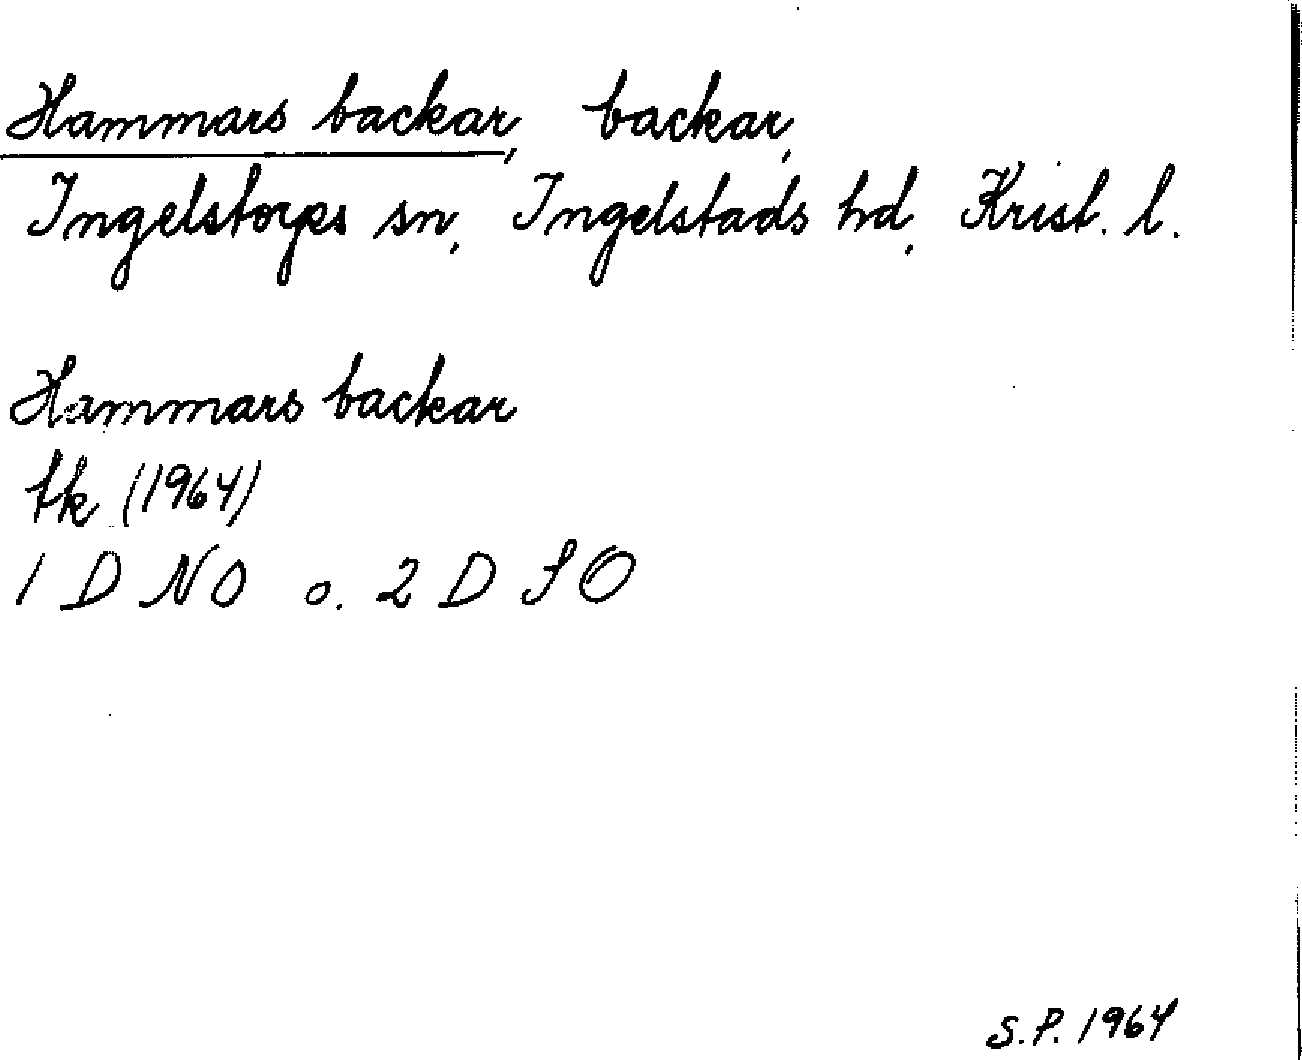 Hammars backar, backar,
Ingelstorps sn, Ingelstads hd, Krist. l.
Hammars backar
tk (1964)
1 D NO o. 2 D SO
S.P. 1964